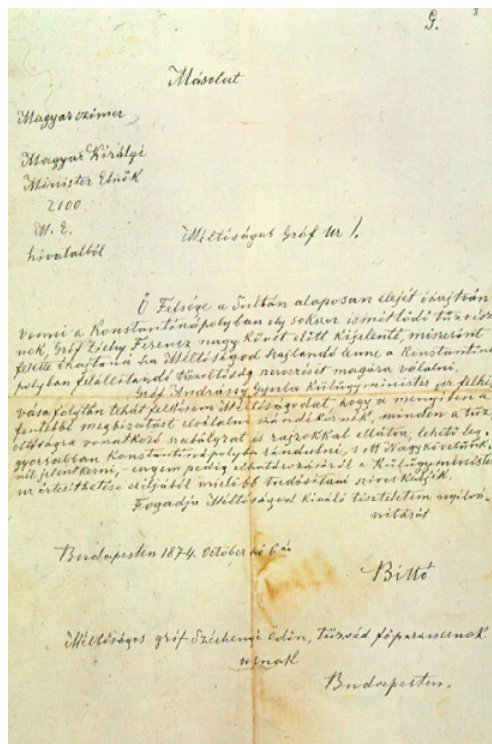 G.
Másolat
Magyar czímer
Magyar Királyi
Minister Elnök
2100
M. E.
hivatalból
Méltóságos Gróf Ur!
Ő Felsége a Sultán alaposan elejét óhajtván
venni a Konstantinápolyban oly sokszor ismétlődő tűzvész
nek, Gróf Zichy Ferencz nagy követ előtt kijelenté, miszerént
felette óhajtaná ha Méltóságod hajlandó lenne a Konstantiná
polyban felállítandó tűzoltóság szervezését magára vállalni.
Gróf Andrássy Gyula Külügyminister úr felhí
vása folytán tehát felkérem Méltóságodat, hogy a mennyiben a
fentebbi megbizatást elvállalni szándékoznék, minden a tűz
oltóságra vonatkozó szabályzat és rajzokkal ellátva, lehető leg
gyorsabban Konstantinápolyba rándulni, s ott Nagykövetünk
nél jelentkezni, – engem pedig elhatározásáról a Külügyminister
ur értesíthetése czéljából mielőbb tudósítani sziveskedjék.
Fogadja Méltóságod kiváló tiszteletem nyilvá
nítását
Budapesten 1874. October hó 6 án
Bittó
Méltóságos gróf Széchenyi Ödön, tűzvéd főparancsnok
urnak
Budapesten.